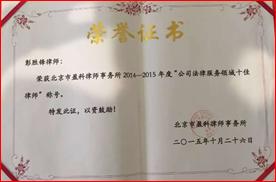 荣誉证书
彭胜锋律师：
荣获北京市盈科律师事务所2014—2015年度“公司法律服务领域十佳
律师”称号。
特发此证，以资鼓励！
北京市盈科律师事务所
二〇一五年十月二十六日